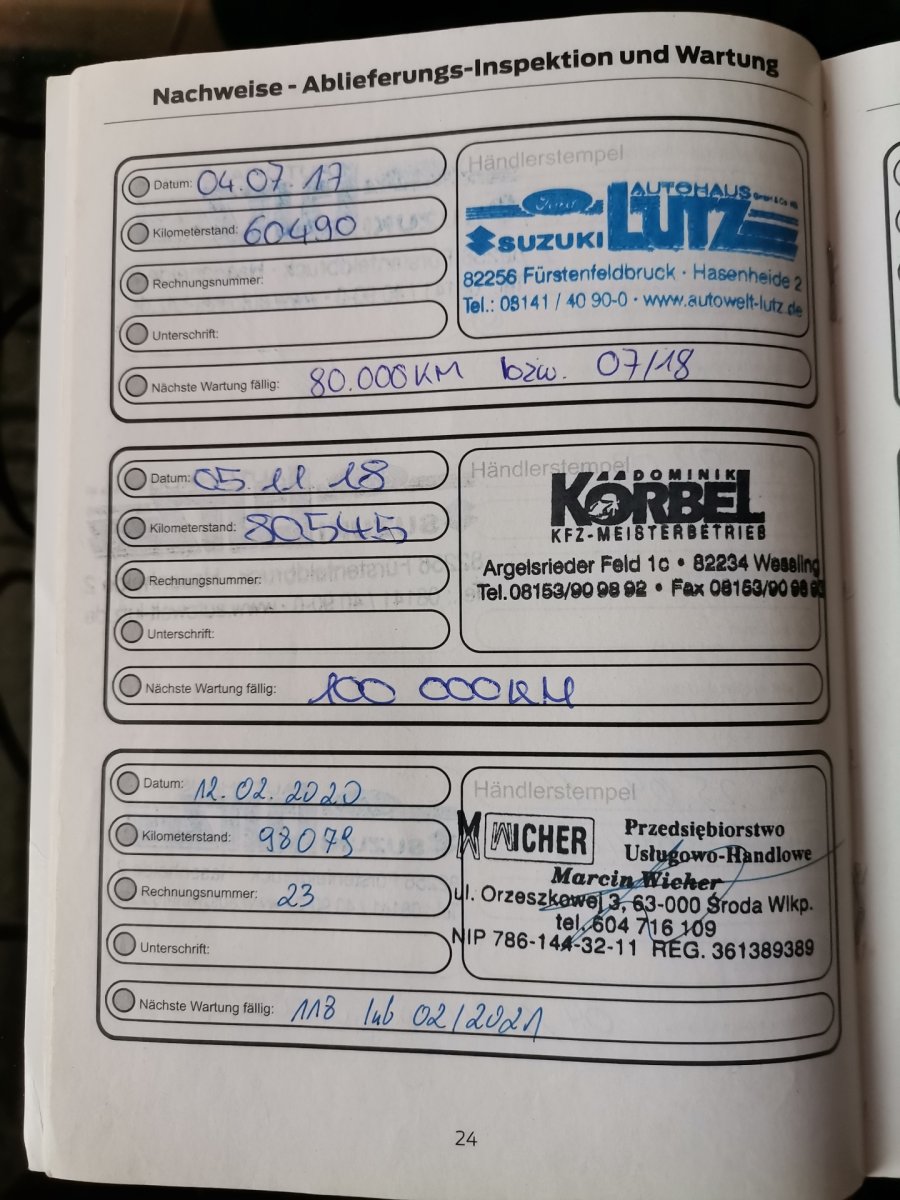 Nachweise - Ablieferungs-Inspektion und Wartung
Datum: 04.07.17
Kilometerstand: 60490
Rechnungsnummer:
Unterschrift:
Nächste Wartung fällig: 80.000KM bzw. 07/18
Händlerstempel
Ford AUTOHAUS GmbH & Co KG
SUZUKI LUTZ
82256 Fürstenfeldbruck · Hasenheide 2
Tel.: 08141 / 40 90-0 · www.autowelt-lutz.de
Datum: 05.11.18
Kilometerstand: 80545
Rechnungsnummer:
Unterschrift:
Nächste Wartung fällig: 100 000KM
Händlerstempel
DOMINIK
KÖRBEL
KFZ-MEISTERBETRIEB
Argelsrieder Feld 1c • 82234 Wessling
Tel. 08153/90 98 92 • Fax 08153/90 98 93
Datum: 12.02.2020
Kilometerstand: 98079
Rechnungsnummer: 23
Unterschrift:
Nächste Wartung fällig: 118 lub 02/2021
Händlerstempel
WICHER Przedsiębiorstwo
Usługowo-Handlowe
Marcin Wicher
ul. Orzeszkowej 3, 63-000 Środa Wlkp.
tel. 604 716 109
NIP 786-144-32-11 REG. 361389389
24